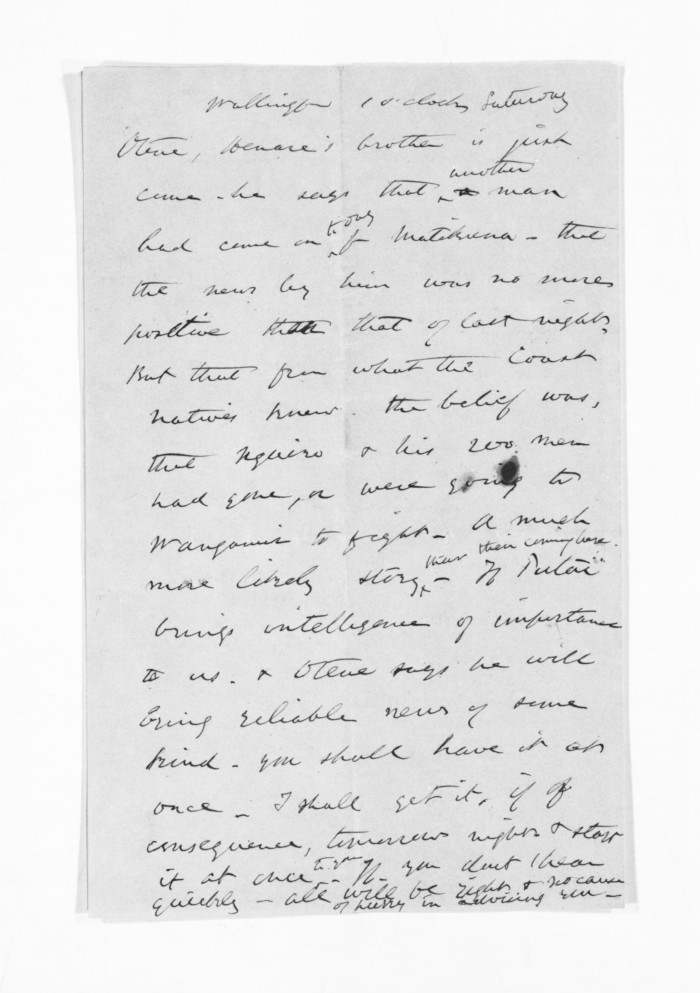 Wellington 1 o'clock Saturday
Otene, Wenare's brother is just
come - he says that another man
had come on to day fr Matikuna - that
the news by him was no more
positive than that of last night.
But that from what the Coast
natives knew. the belief was,
that & his 200 men
had gone, or were going to
Wanganui to fight - A much
more likely story than their coming here. - If
brings intelligence of importance
to us. & Otene says he will
bring reliable news of some
kind - you shall have it at
once - I shall get it, if of
consequence, tomorrow night &
it at once to you - If you dont hear
quickly - all will be right & no cause
of hurry in advising you -